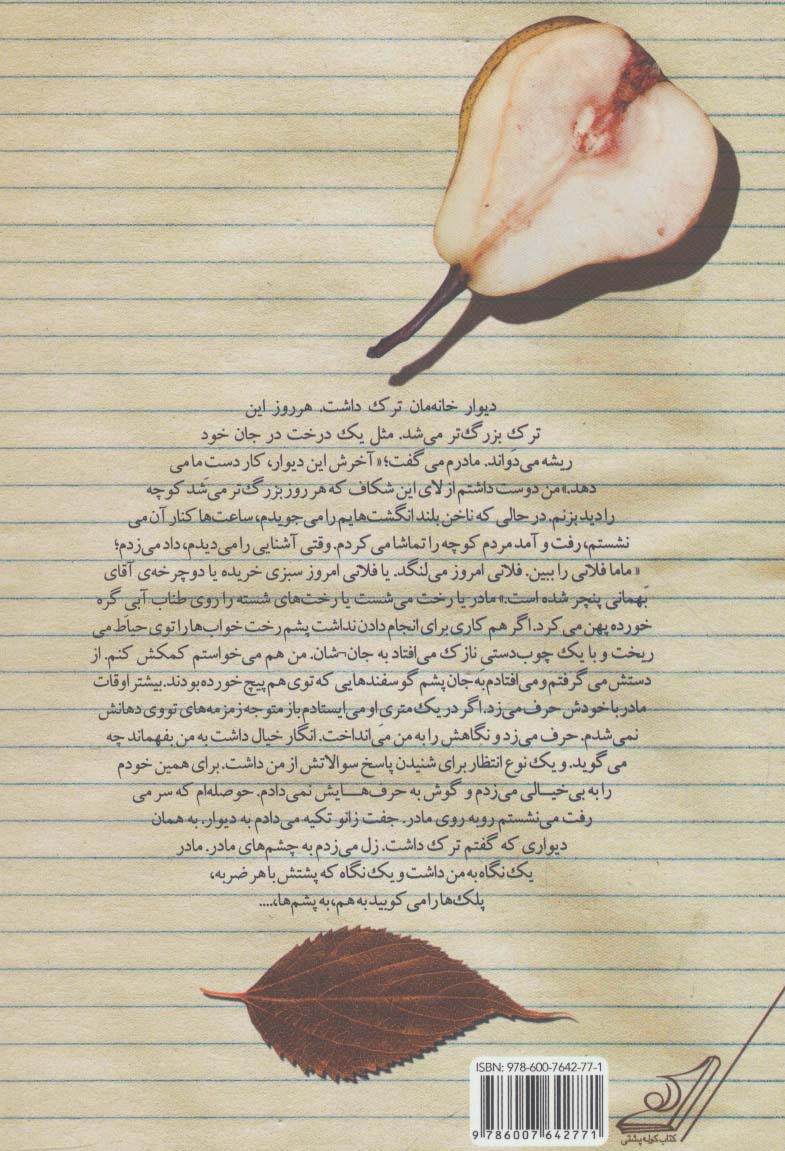 دیوار خانه‌مان ترک داشت. هرروز این
ترک بزرگ‌تر می‌شد. مثل یک درخت در جان خود
ریشه می‌دَواند. مادرم می‌گفت؛« آخرش این دیوار، کار دست ما می
دهد.» من دوست داشتم از لای این شکاف که هر روز بزرگ‌تر می‌شد کوچه
را دید بزنم. در حالی که ناخن بلند انگشت‌هایم را می‌جویدم، ساعت‌ها کنار آن می
نشستم، رفت و آمد مردم کوچه را تماشا می‌کردم. وقتی آشنایی را می‌دیدم، داد می‌زدم؛
« ماما فلانی را ببین. فلانی امروز می‌لنگد. یا فلانی امروز سبزی خریده یا دوچرخه‌ی آقای
بَهمانی پنچر شده است.» مادر یا رخت می‌شست یا رخت‌های شسته را روی طناب آبی گره
خورده پهن می‌کرد. اگر هم کاری برای انجام دادن نداشت پشم رخت خواب‌ها را توی حیاط می
ریخت و با یک چوب‌دستی نازک می‌افتاد به جان¬شان. من هم می‌خواستم کمکش کنم. از
دستش می‌گرفتم و می‌افتادم به جان پشم گوسفندهایی که توی هم پیچ خورده بودند. بیشتر اوقات
مادر با خودش حرف می‌زد. اگر در یک متری او می‌ایستادم باز متوجه زمزمه‌های تووی دهانش
نمی‌شدم. حرف می‌زد و نگاهش را به من می‌انداخت. انگار خیال داشت به من بفهماند چه
می‌گوید. و یک نوع انتظار برای شنیدن پاسخ سوالاتش از من داشت. برای همین خودم
را به بی‌خیالی می‌زدم و گوش به حرف‌هـــایش نمی‌دادم. حوصله‌ام که سر می
رفت می‌نشستم روبه روی مادر. جفت زانو تکیه می‌دادم به دیوار. به همان
دیواری که گفتم ترک داشت. زل می‌زدم به چشم‌های مادر. مادر
یک نگاه به من داشت و یک نگاه که پشتش با هر ضربه،
پلک‌ها را می‌کوبید به هم، به پشم‌ها،....
ISBN: 978-600-7642-77-1
9 786007 642771
کتاب کوله‌پشتی